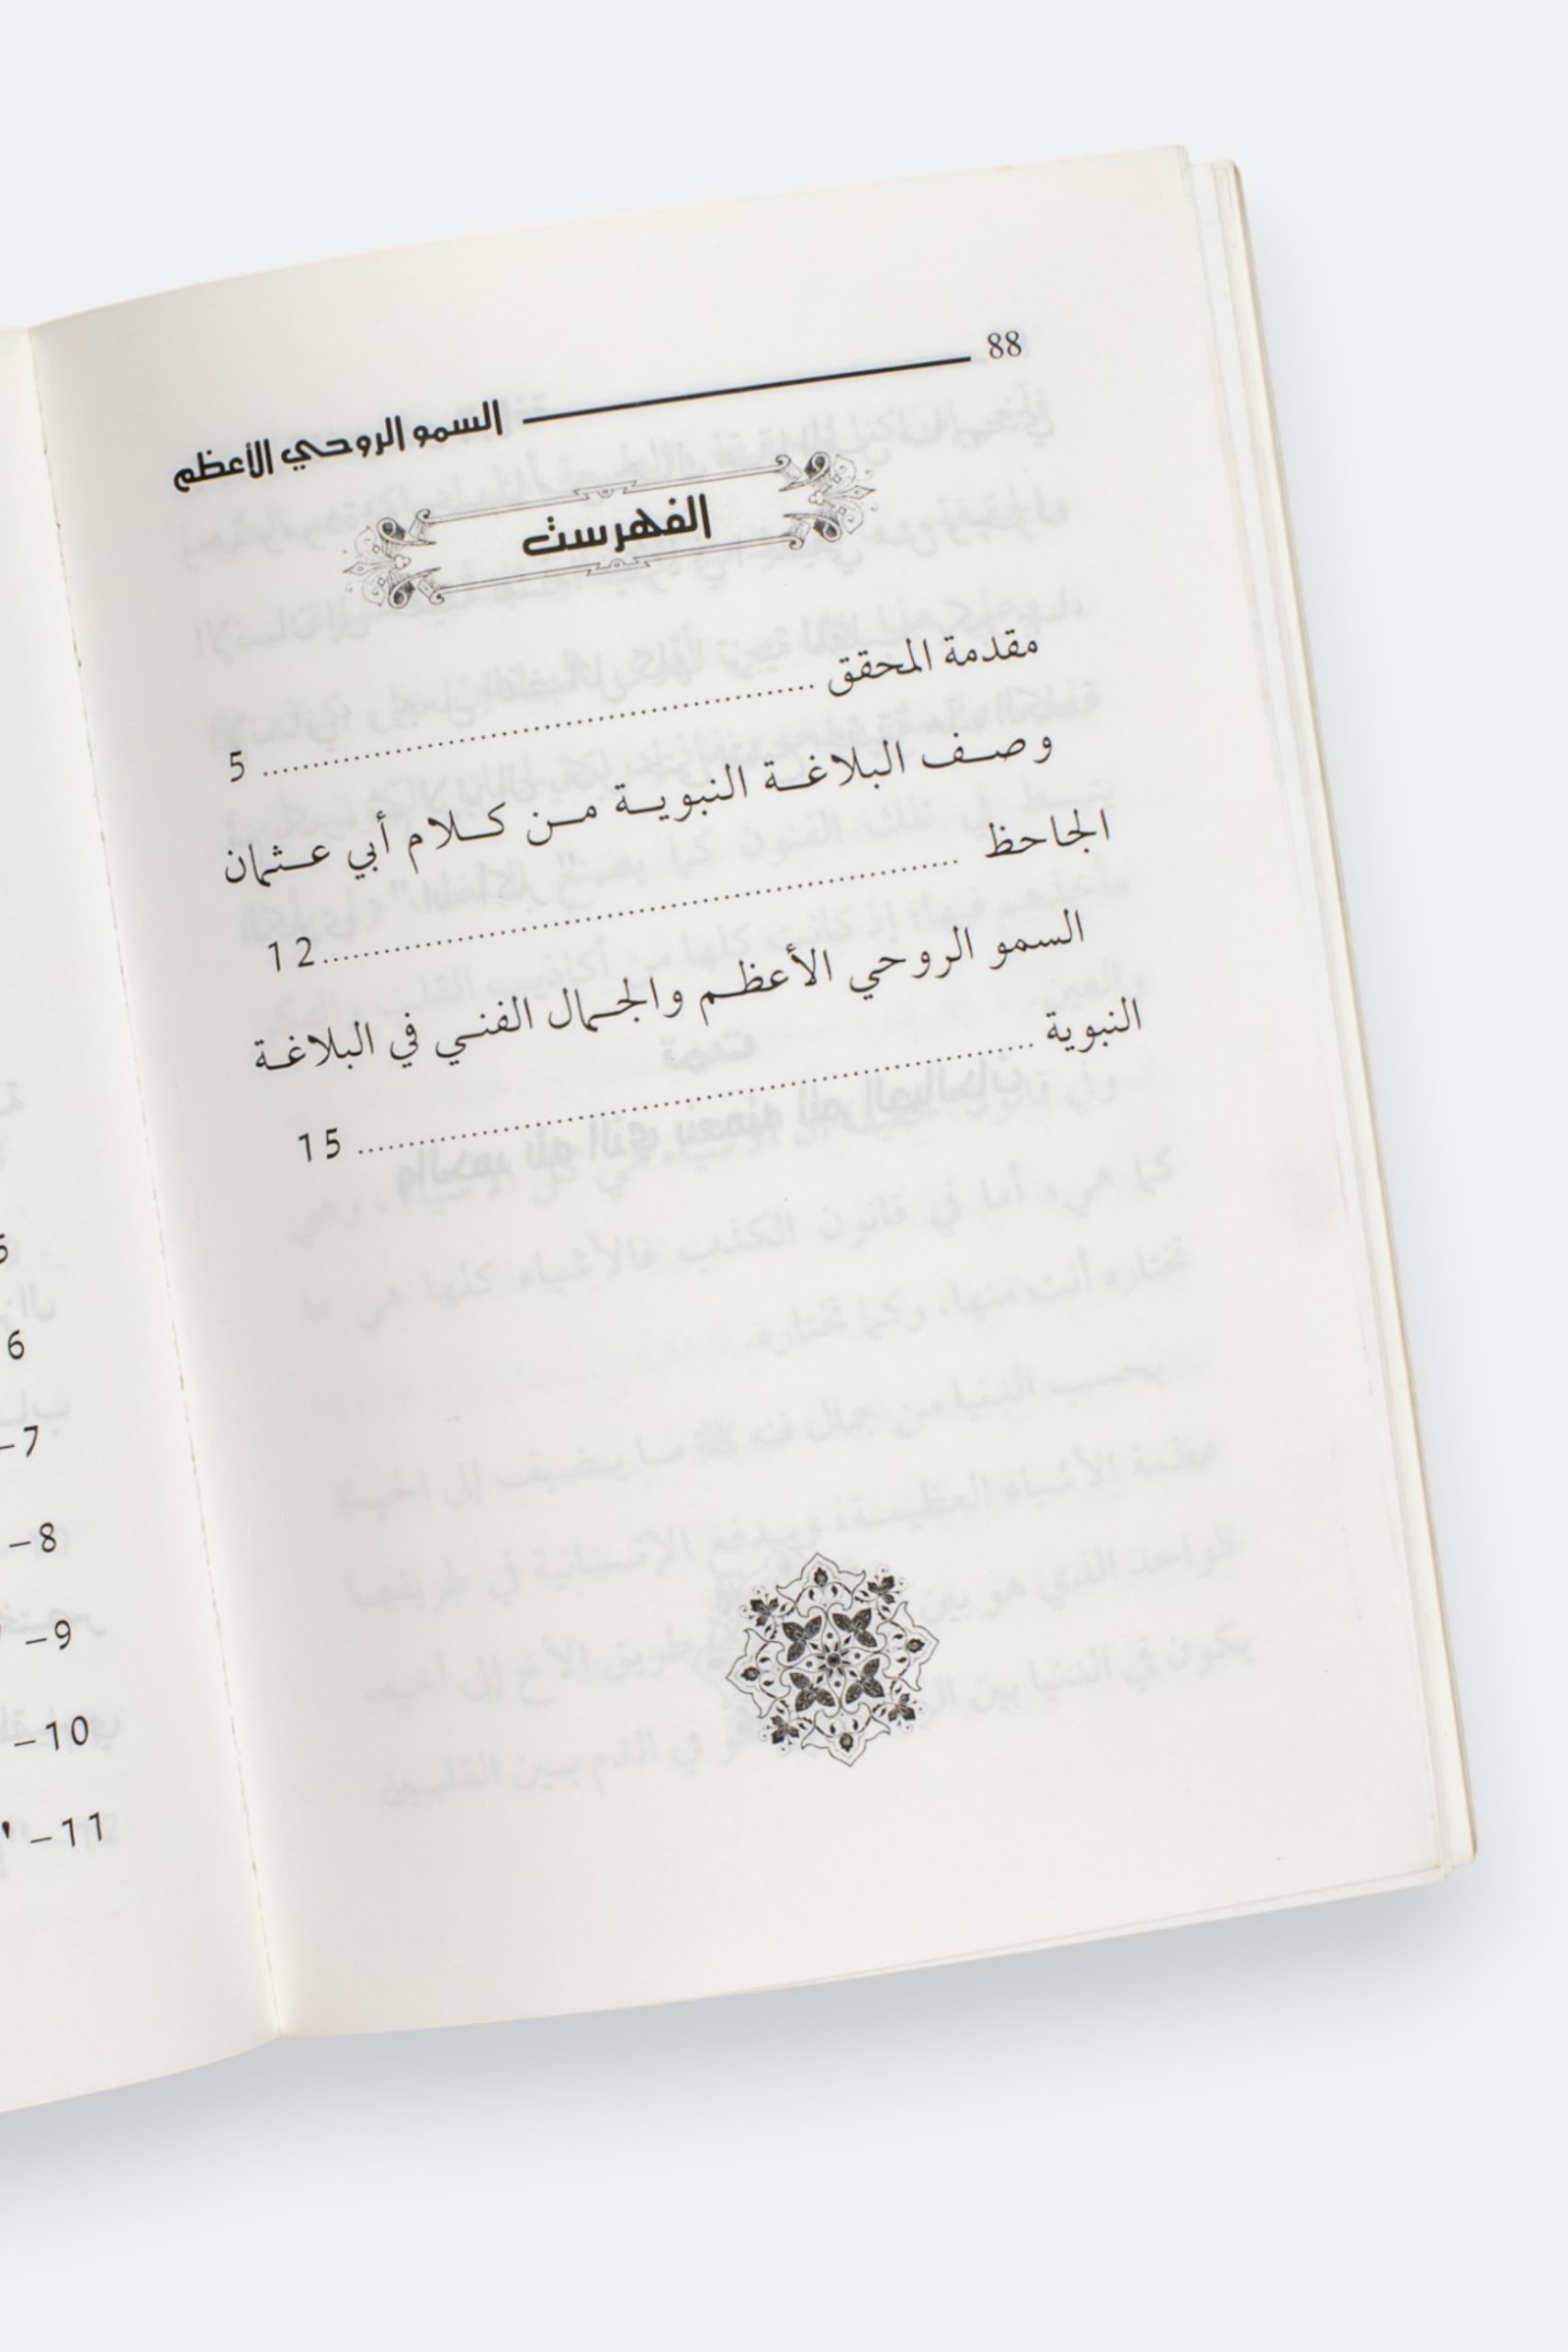 88 السمو الروحي الأعظم
الفهرست
مقدمة المحقق .......... 5
وصف البلاغة النبوية من كلام أبي عثمان
الجاحظ .......... 12
السمو الروحي الأعظم والجمال الفني في البلاغة
النبوية .......... 15
6
7-
8-
9-
10-
11-